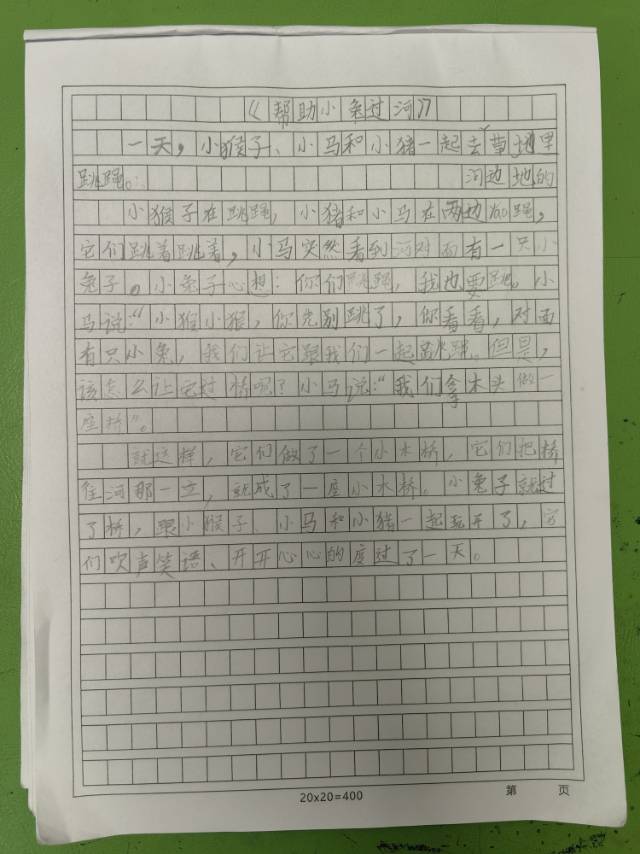 《帮助小兔过河》
一天，小猴子、小马和小猪一起去草地里
跳绳。 河边地的
小猴子在跳绳，小猪和小马在两边 绳，
它们跳着跳着，小马突然看到河对面有一只小
兔子。小兔子心想：你们 跳绳，我也要跳。小
马说：“小猴小猴，你先别跳了，你看看，对面
有只小兔，我们让它跟我们一起跳绳。但是，
该怎么让它过 呢？小马说：“我们拿木头做一
座桥”。
就这样，它们做了一个小木桥，它们把桥
往河那一立，就成了一座小木桥。小兔子就过
了桥，跟小猴子、小马和小猪一起玩开了，它
们吹声笑语、开开心心的度过了一天。
20x20=400
第 页